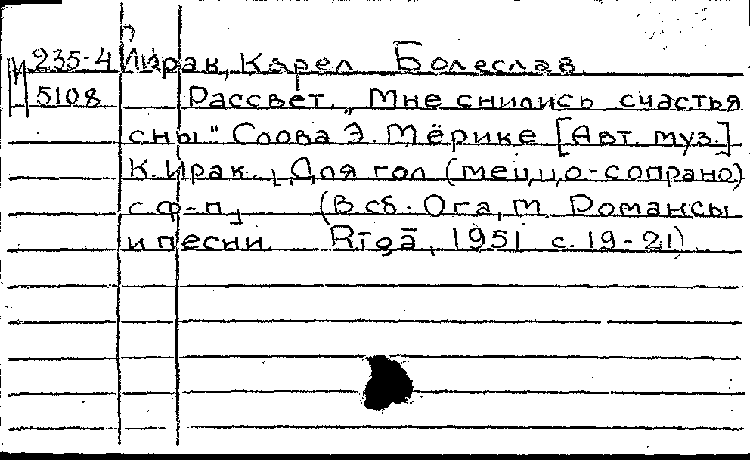 И 235-4 Йирак, Карел Болеслав
5108 Рассвет. „Мне снились счастья
сны" Слова Э. Мёрике [Авт. муз.]
К. Ирак. Для гол (меццо-сопрано)
с ф-п, (В сб. Ога, т Романсы
и песни. Rīgā, 1951 с. 19-21)